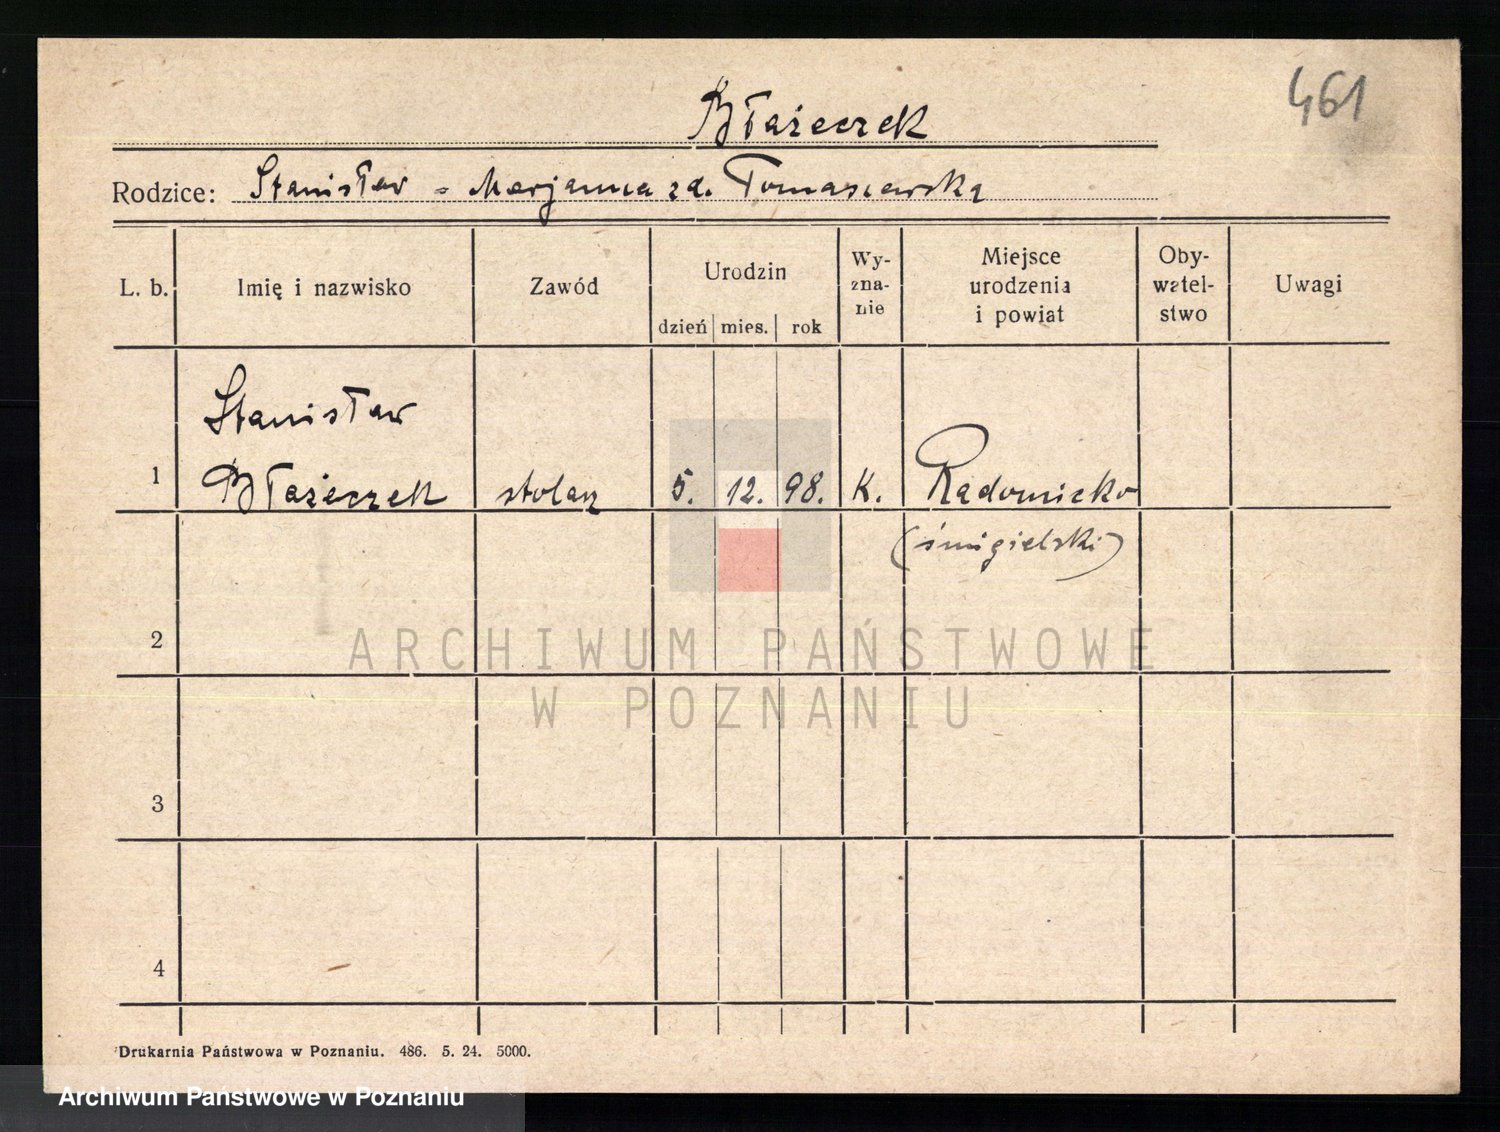 461
Błażeczek
Rodzice: Stanisław = Marjanna zd. Tomaszewska
L. b. Imię i nazwisko Zawód Urodzin dzień mies. rok Wy-zna-nie Miejsce urodzenia i powiat Oby-watel-stwo Uwagi
Stanisław
1 Błażeczek stolarz 5. 12. 98. K. Radomicko
(śmigielski)
2
ARCHIWUM PAŃSTWOWE
W POZNANIU
3
4
Drukarnia Państwowa w Poznaniu. 486. 5. 24. 5000.
Archiwum Państwowe w Poznaniu